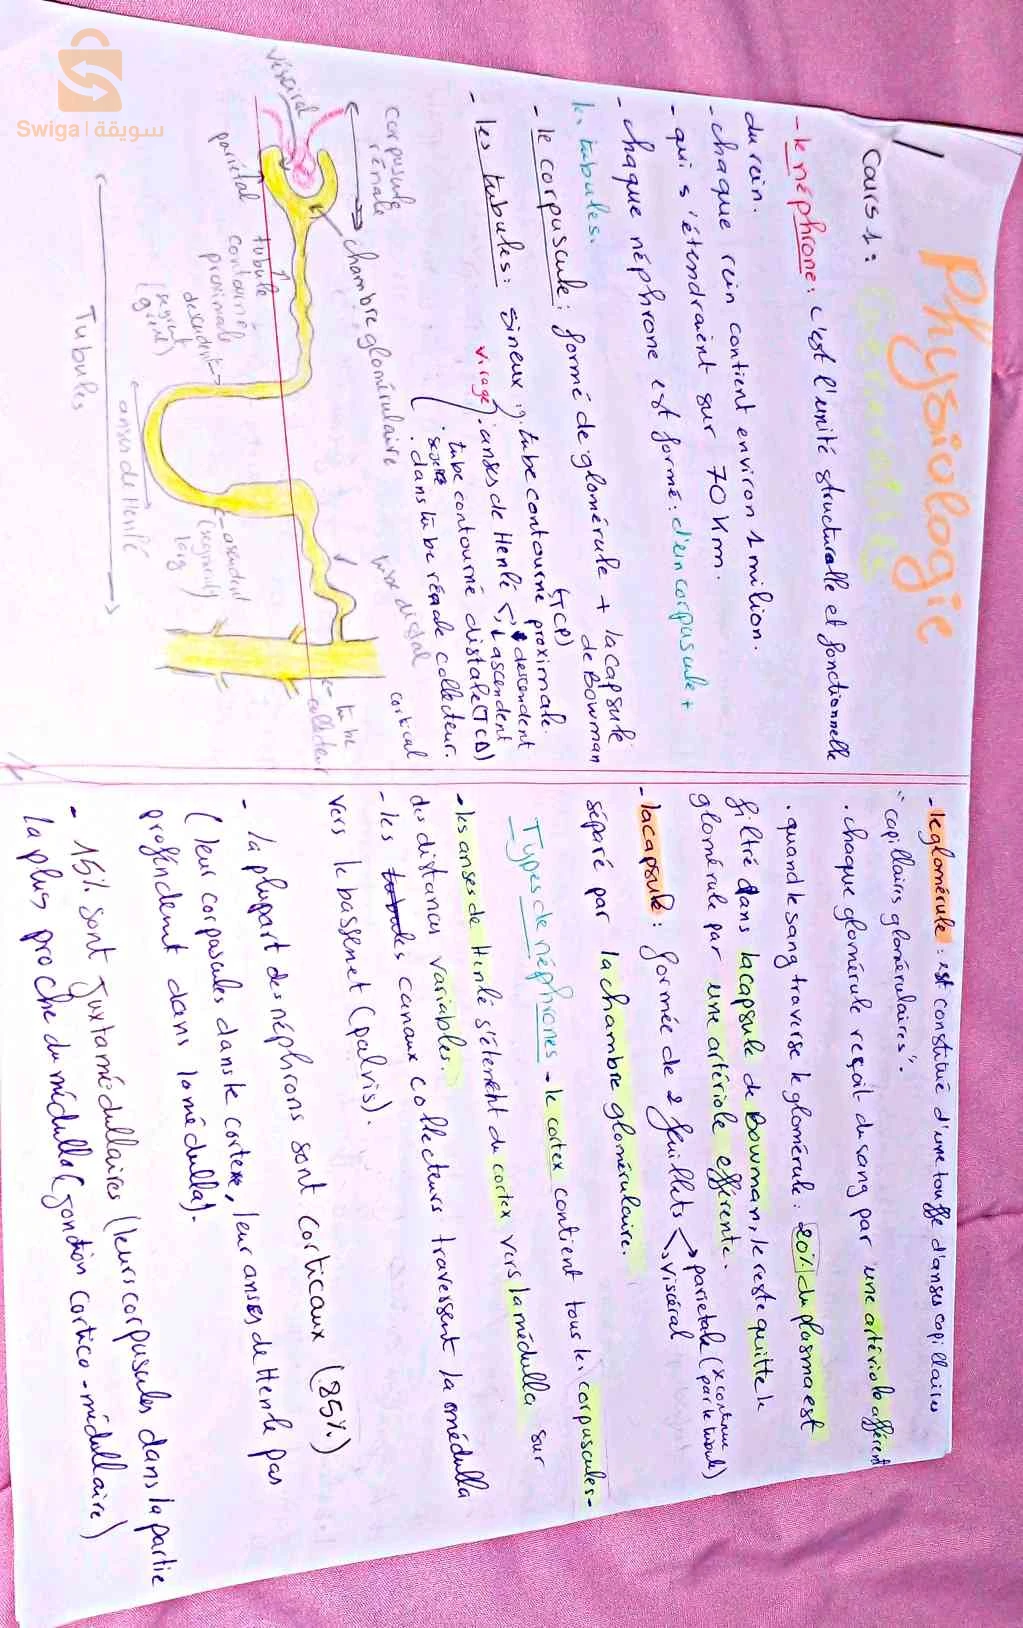 Swiga | سويقة
Physiologie
Cours 1:
- le néphrone: c'est l'unité structuralle et fonctionnelle
du rein.
- chaque rein contient environ 1 milion.
- qui s'étendraient sur 70 Km.
- chaque néphrone est formé: d'ein corpuscule +
les tubules.
- le corpuscule: formé de glomérule + la capsule
de Bowman
- les tubules: sineux: tube contourné proximale.
(TCP)
virage anses de Henlé descendent
ascendent
tube contourné distale (TCD)
. dans tube rénale collecteur.
corpuscule
rénale
viscéral
pariétal
chambre glomérulaire
tubule
contourné
proximale
descendent
anse de Henlé
ascendent
tube distal
cortical
tube
collecteur
Tubules
- le glomérule: est constitué d'une touffe d'anses capillaires
"capillairs glomérulaires".
. chaque glomérule reçoit du sang par une artériole afférent
. quand le sang traverse le glomérule: 20% du plasma est
filtré dans la capsule de Bowman, le reste quitte le
glomérule par une artériole efférente.
- la capsule: formée de 2 feuillets parietale (x continue
par le tubule)
viscéral
séparé par la chambre glomérulaire.
Types de néphrones - le cortex contient tous les corpuscules -
- les anses de Henlé s'étendent du cortex vers la médulla sur
des distances variables.
- les canaux collecteurs traversent la médulla
vers le bassenet (palvis).
- la plupart des néphrons sont corticaux (85%)
(leur corpuscules dans le cortexe, leur anses de Henle pas
profondement dans la médulla).
- 15% sont Juxtamédullaires (leurs corpuscules dans la partie
la plus proche du médulla (jonction cortico-médullaire)